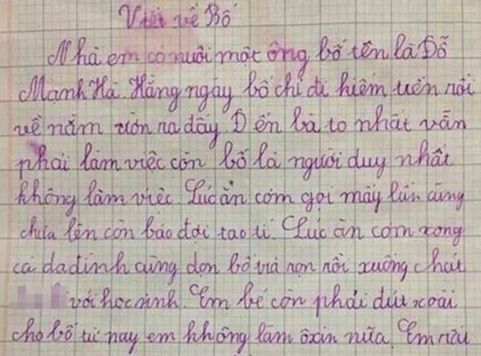 Viết về Bố
Nhà em có nuôi một ông bố tên là Đỗ
Mạnh Hà. Hàng ngày bố chỉ đi kiếm tiền rồi
về nằm ườn ra đấy Đ ến bà to nhất vẫn
phải làm việc còn bố là người duy nhất
không làm việc. Lúc ăn cơm gọi mấy lần cũng
chưa lên còn bảo đợi tao tí. Lúc ăn cơm xong
cả da dình cũng dọn bố trả non nồi xuống chát
với học sinh. Em bé còn phải đút xoài
cho bố từ nay em không làm ôxin nữa. Em